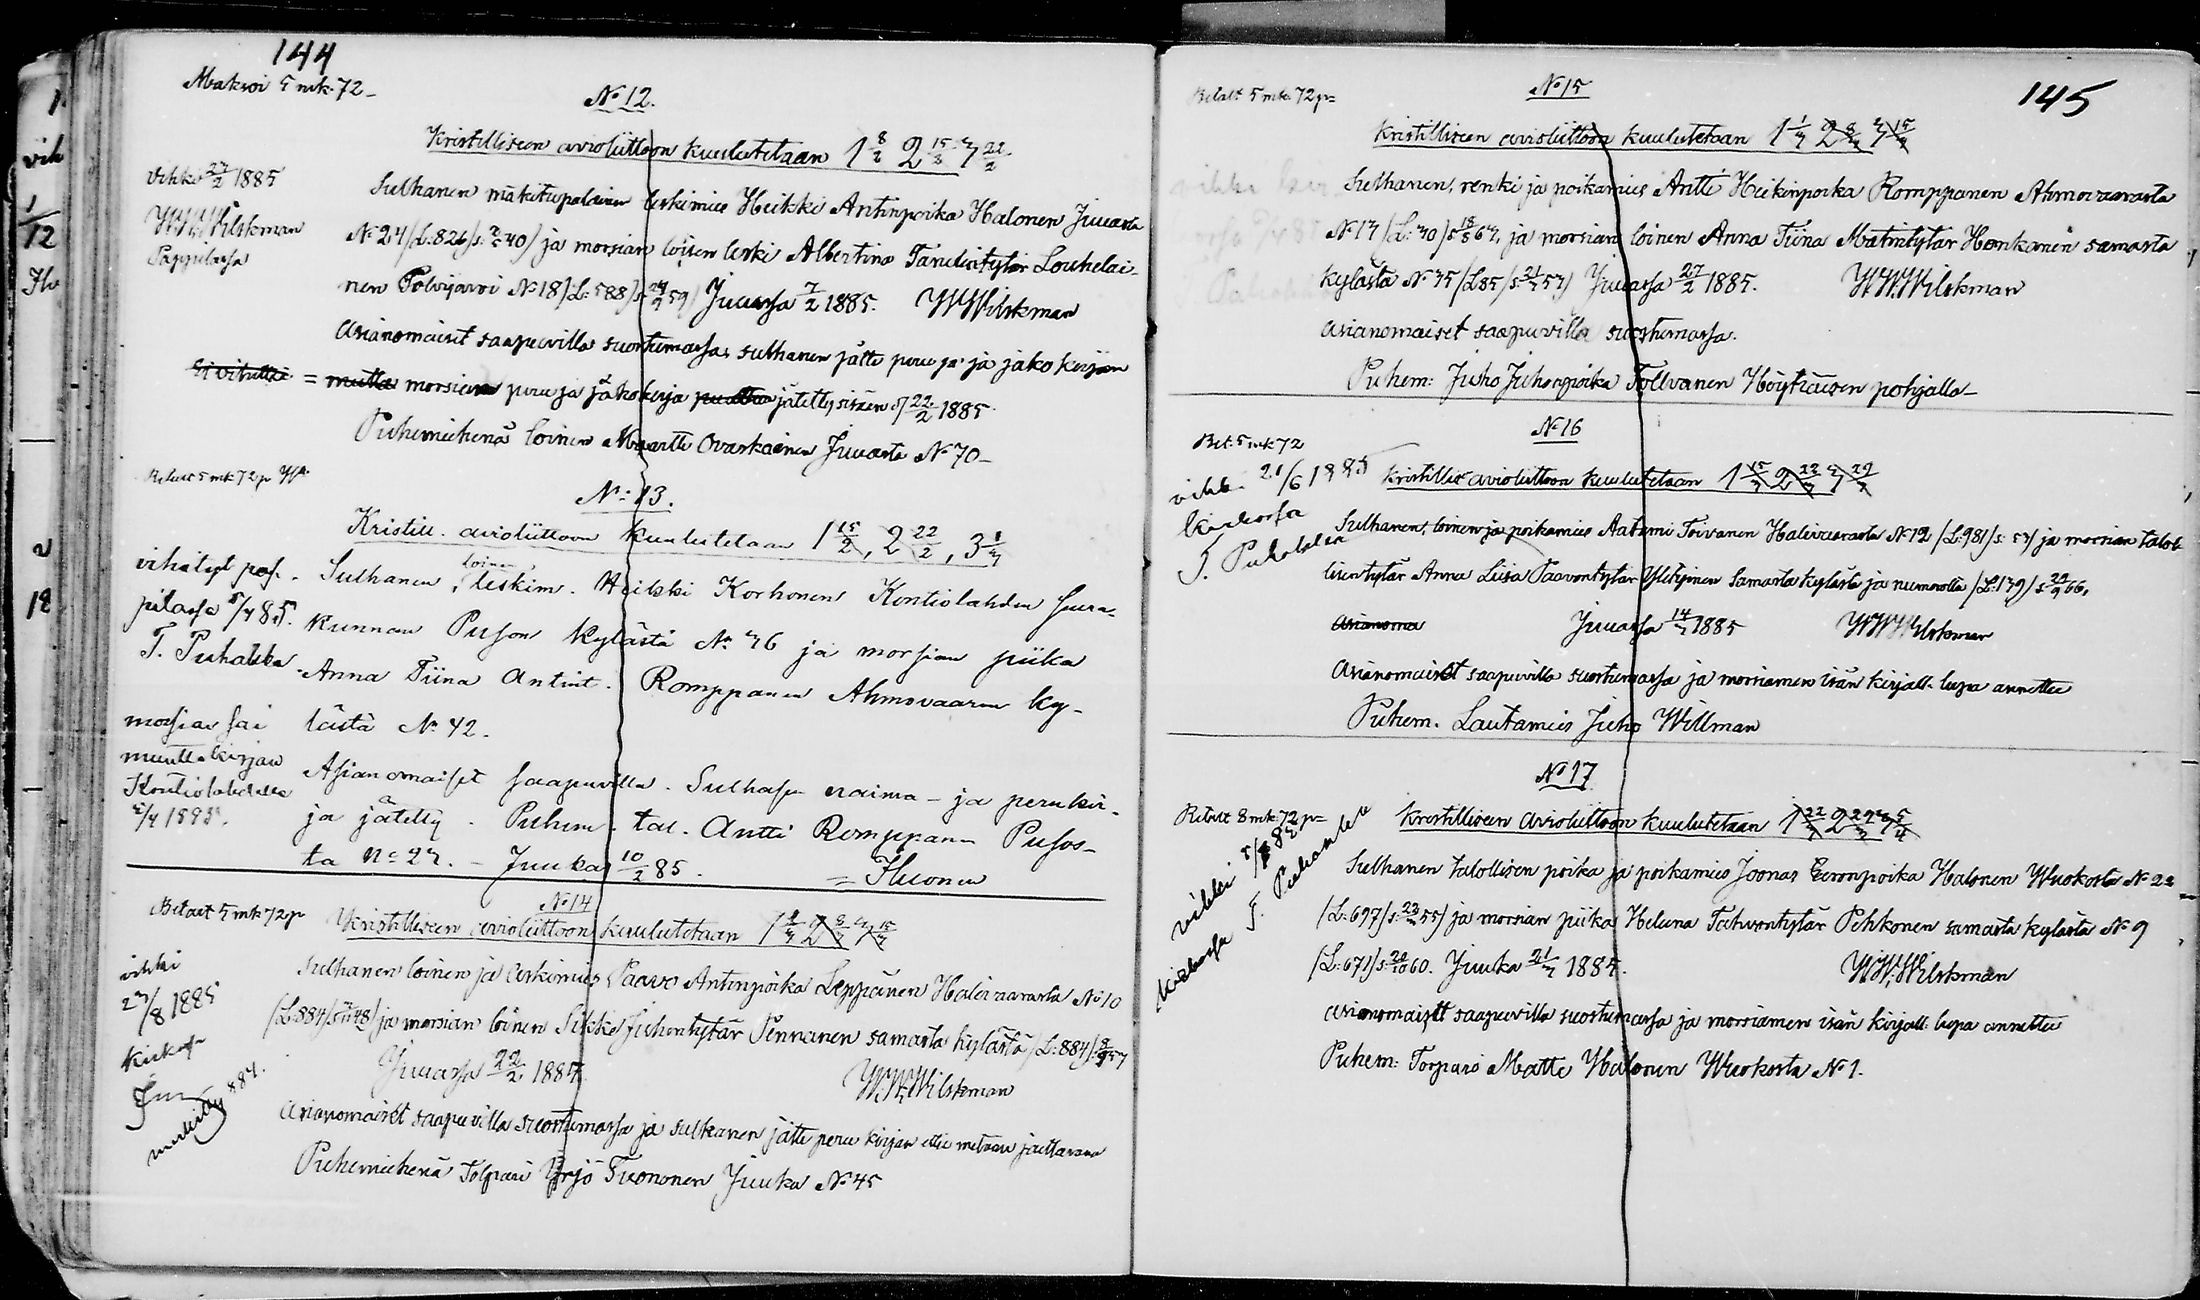 144
Maksoi 5 mk. 72
No 12.
Kristilliseen avioliittoon kuulutetaan 1 8/2 2 15/2 3 22/2
Vihko 27/2 1885
W.W. Wilskman
Pappilassa
Sulhanen mäkitupalainen leskimies Heikki Antinpoika Halonen Juuasta
No 24 /L: 826/ ja morsian loinen leski Albertina Tanelintytär Louhelai-
nen Polvijärvi No 18 /L: 588/ Juuassa 7/2 1885. WWWilskman
Asianomaiset saapuvilla suostumassa, sulhanen jätti peru ja jako kirjan
Ei vihitty = mutta morsian peru ja jakokirja puuttuu jätetty sisään 22/2 1885
Puhemiehenä loinen Martti Ovaskainen Juuasta No 70
Betalt 5 mk 72 p
No: 13.
Kristill. avioliittoon kuulutetaan 1 15/2, 2 22/2, 3 1/3
vihityt pap-
pilassa 5/4 85.
loinen
Sulhanen, leskim. Heikki Korhonen Kontiolahden seura-
kunnan Puson kylästä No 36 ja morsian piika
Anna Tiina Antint. Romppanen Ahmovaaran ky-
lästä No 42.
morsian sai
muuttokirjan
Kontiolahdelle
Asianomaiset saapuvilla. Sulhasen naima- ja perukir-
ja jätetty. Puhem. tal. Antti Romppanen Pusos-
ta No 27. - Juuka 10/2 85.
Betalt 5 mk 72 p
No 14
Kristilliseen avioliittoon kuulutetaan 1 1/3 2 8/3 3 15/3
vihki
23/8 1885
Sulhanen loinen ja leskimies Paavo Antinpoika Leppänen Halivaarasta No 10
/L: 884/ ja morsian loinen Juhontytär Pennanen samasta kylästä /L: 884/
Juuassa 22/2 1885.
W.W. Wilskman
Asianomaiset saapuvilla suostumassa ja sulhanen jätti peru kirjan ettei mitään jaettavana
Puhemiehenä Yrjö Tuononen Juuka No 45
145
Betalt 5 mk. 72 p
No 15
Kristilliseen avioliittoon kuulutetaan 1 1/3 2 8/3 3 15/3
Sulhanen, renki ja poikamies Antti Heikinpoika Romppanen Ahmovaarasta
ja morsian loinen Anna Tiina Matintytär Honkanen samasta
kylästä No 35 /L 85/ Juuassa 27/2 1885. W.W. Wilskman
Asianomaiset saapuvilla suostumassa.
Puhem: Juho Juhonpoika Tolvanen Höytiäisen pohjalla
Bet. 5 mk 72
No 16
vihk. 21/6 1885
kirkossa
Kristillis avioliittoon kuulutetaan 1 15/3 2 22/3 3 29/3
Sulhanen, loinen ja poikamies Aatami Toivanen Halivaarasta No 12 /L: 981/ ja morsian talol-
lisentytär Anna Liisa Paavontytär samasta kylästä ja numerolta /L: 139/
Asianoma Juuassa 14/3 1885 WWWilskman
Asianomaiset saapuvilla suostumassa ja morsiamen isän kirjall. lupa annettu
Puhem. Lautamies Juho Willman
No 17
Betalt 8 mk. 72 p
Kristilliseen avioliittoon kuulutetaan 1 22/3 2 29/3 3 5/4
Sulhanen talollisen poika ja poikamies Joonas Eeronpoika Halonen Wuokosta
/L: 697/ ja morsian piika Helena Tahvontytär Pehkonen samasta kylästä No 9
/L: 671/ Juuka 21/3 1885. W.W. Wilskman
Asianomaiset saapuvilla suostumassa ja morsiamen isän kirjall. lupa annettu
Puhem: Torppari Matti Halonen Wuokosta No 1.